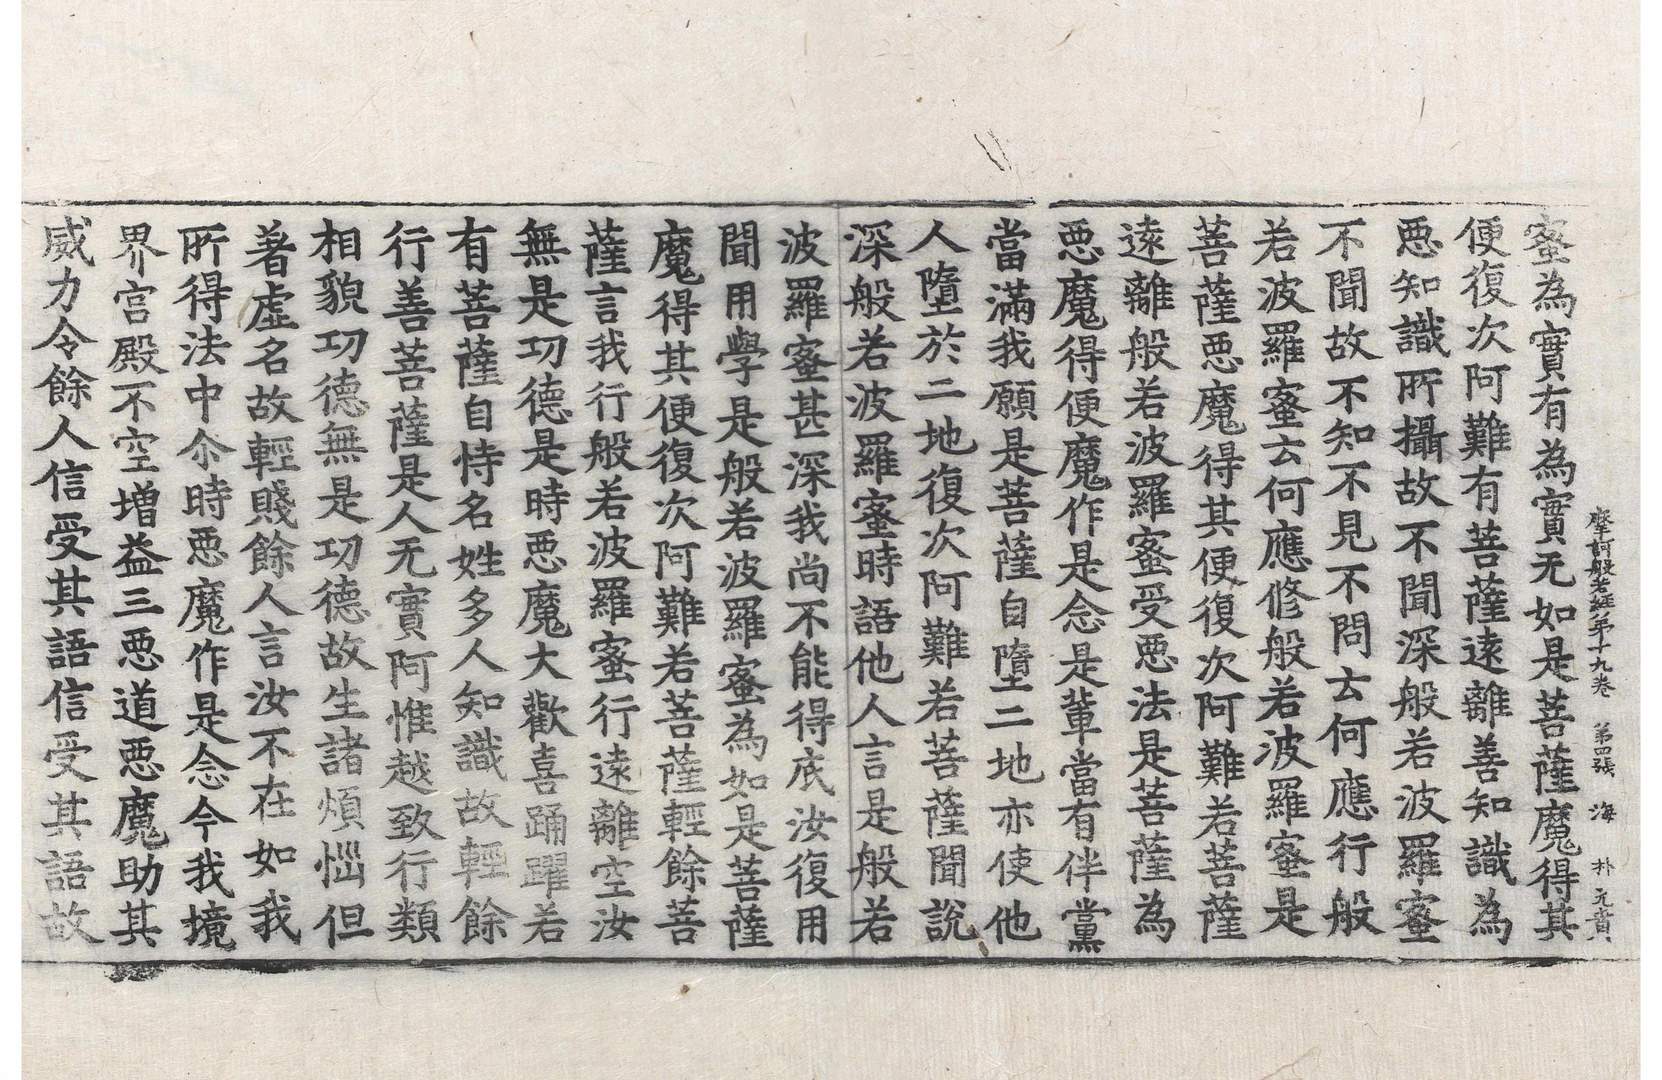 摩訶般若經第十九卷 第四張 海 朴元賁
蜜為實有為實无如是菩薩魔得其
便復次阿難有菩薩遠離善知識為
惡知識所攝故不聞深般若波羅蜜
不聞故不知不見不問云何應行般
若波羅蜜云何應修般若波羅蜜是
菩薩惡魔得其便復次阿難若菩薩
遠離般若波羅蜜受惡法是菩薩為
惡魔得便魔作是念是輩當有伴黨
當滿我願是菩薩自墮二地亦使他
人墮於二地復次阿難若菩薩聞說
深般若波羅蜜時語他人言是般若
波羅蜜甚深我尚不能得底汝復用
聞用學是般若波羅蜜為如是菩薩
魔得其便復次阿難若菩薩輕餘菩
薩言我行般若波羅蜜行遠離空汝
無是功德是時惡魔大歡喜踊躍若
有菩薩自恃名姓多人知識故輕餘
行善菩薩是人无實阿惟越致行類
相貌功德無是功德故生諸煩惱但
著虛名故輕賤餘人言汝不在如我
所得法中尒時惡魔作是念今我境
界宮殿不空增益三惡道惡魔助其
威力令餘人信受其語信受其語故